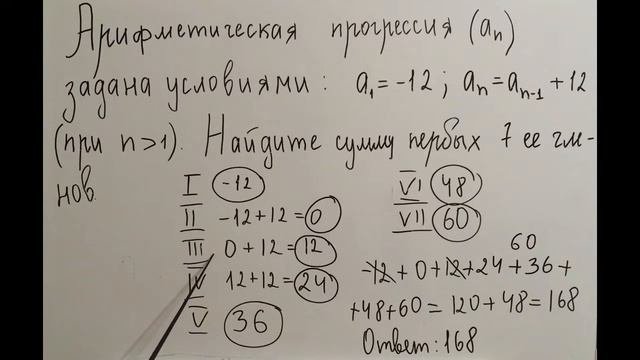 Арифметическая прогрессия (aₙ)
задана условиями: a₁ = -12; aₙ = aₙ₋₁ + 12
(при n > 1). Найдите сумму первых 7 ее чле-
нов.
I -12
II -12+12=0
III 0+12=12
IV 12+12=24
V 36
VI 48
VII 60
60
-12+0+12+24+36+
+48+60=120+48=168
Ответ: 168